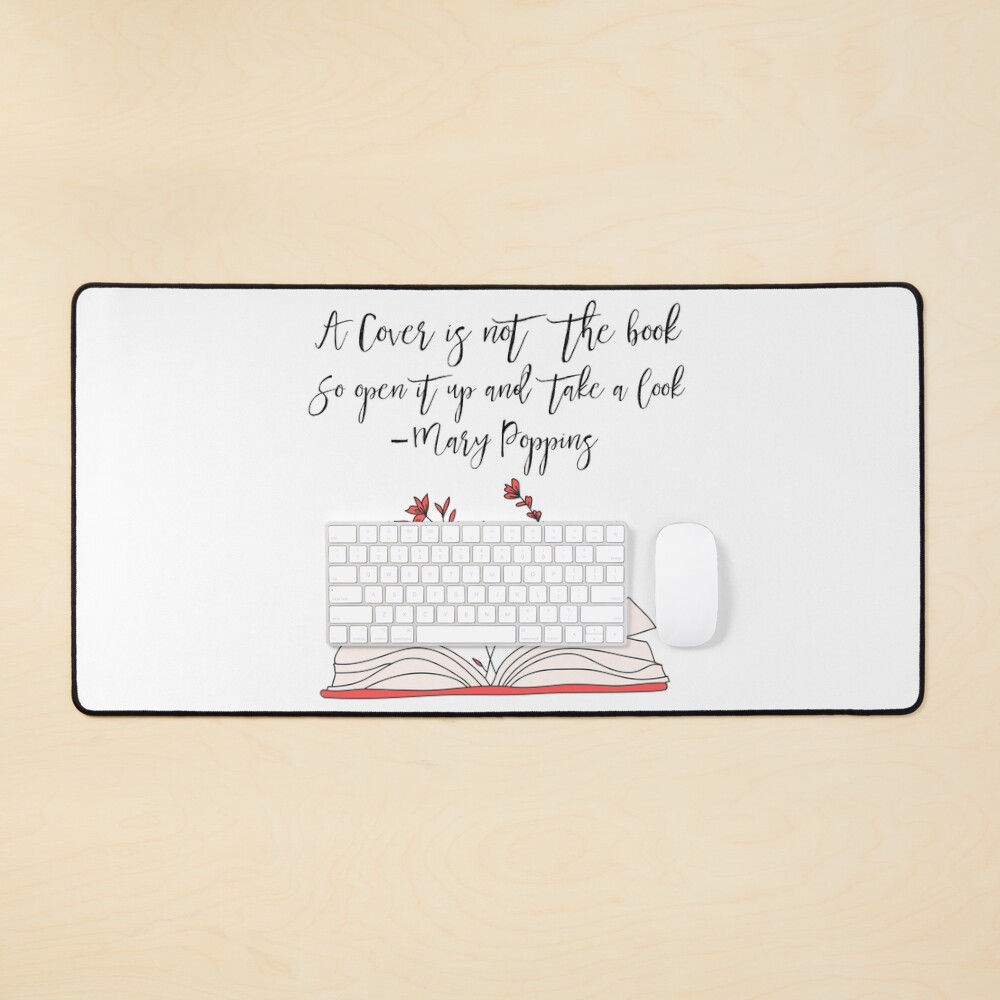 A Cover is not the book
So open it up and take a look
-Mary Poppins